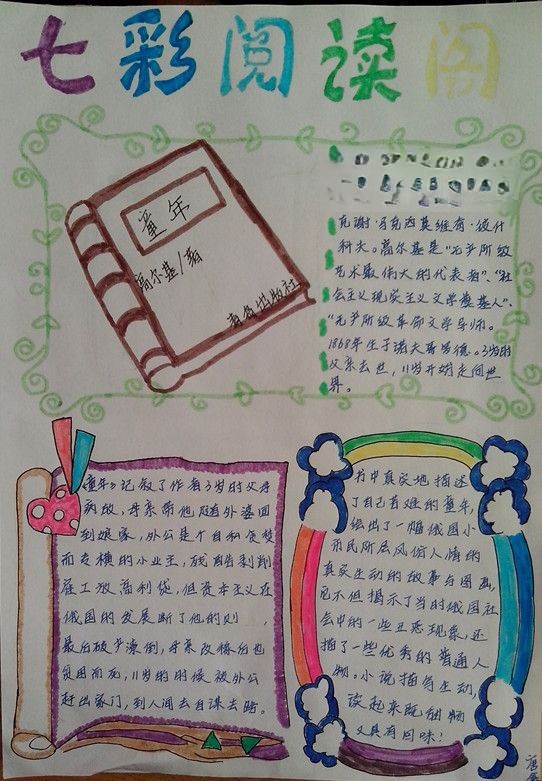 七彩阅读阁
童年
高尔基/著
青岛出版社
克谢·马克西莫维奇·彼什
科夫。高尔基是“无产阶级
艺术最伟大的代表者”、“社
会主义现实主义文学奠基人”、
“无产阶级革命文学导师。
1868年生于诺夫哥罗德。3岁时
父亲去世，11岁开始走向世
界。
《童年》记叙了作者3岁时父母
病故，母亲带他随着外婆回
到娘家，外公是个自私贪婪
而专横的小业主，残酷剥削
雇工放高利贷，但资本主义在
俄国的发展断了他的财
最后破产潦倒，母亲改嫁后也
贫困而死，11岁的时候被外公
赶出家门，到人间去自谋出路。
书中真实地描述
了自己苦难的童年，
绘出了一幅俄国小
市民阶层风俗人情的
真实生动的故事与图画，
它不但揭示了当时俄国社
会中的一些丑恶现象，还
描了一些优秀的普通人
物。小说描写生动，
读起来既细物
又具有回味！